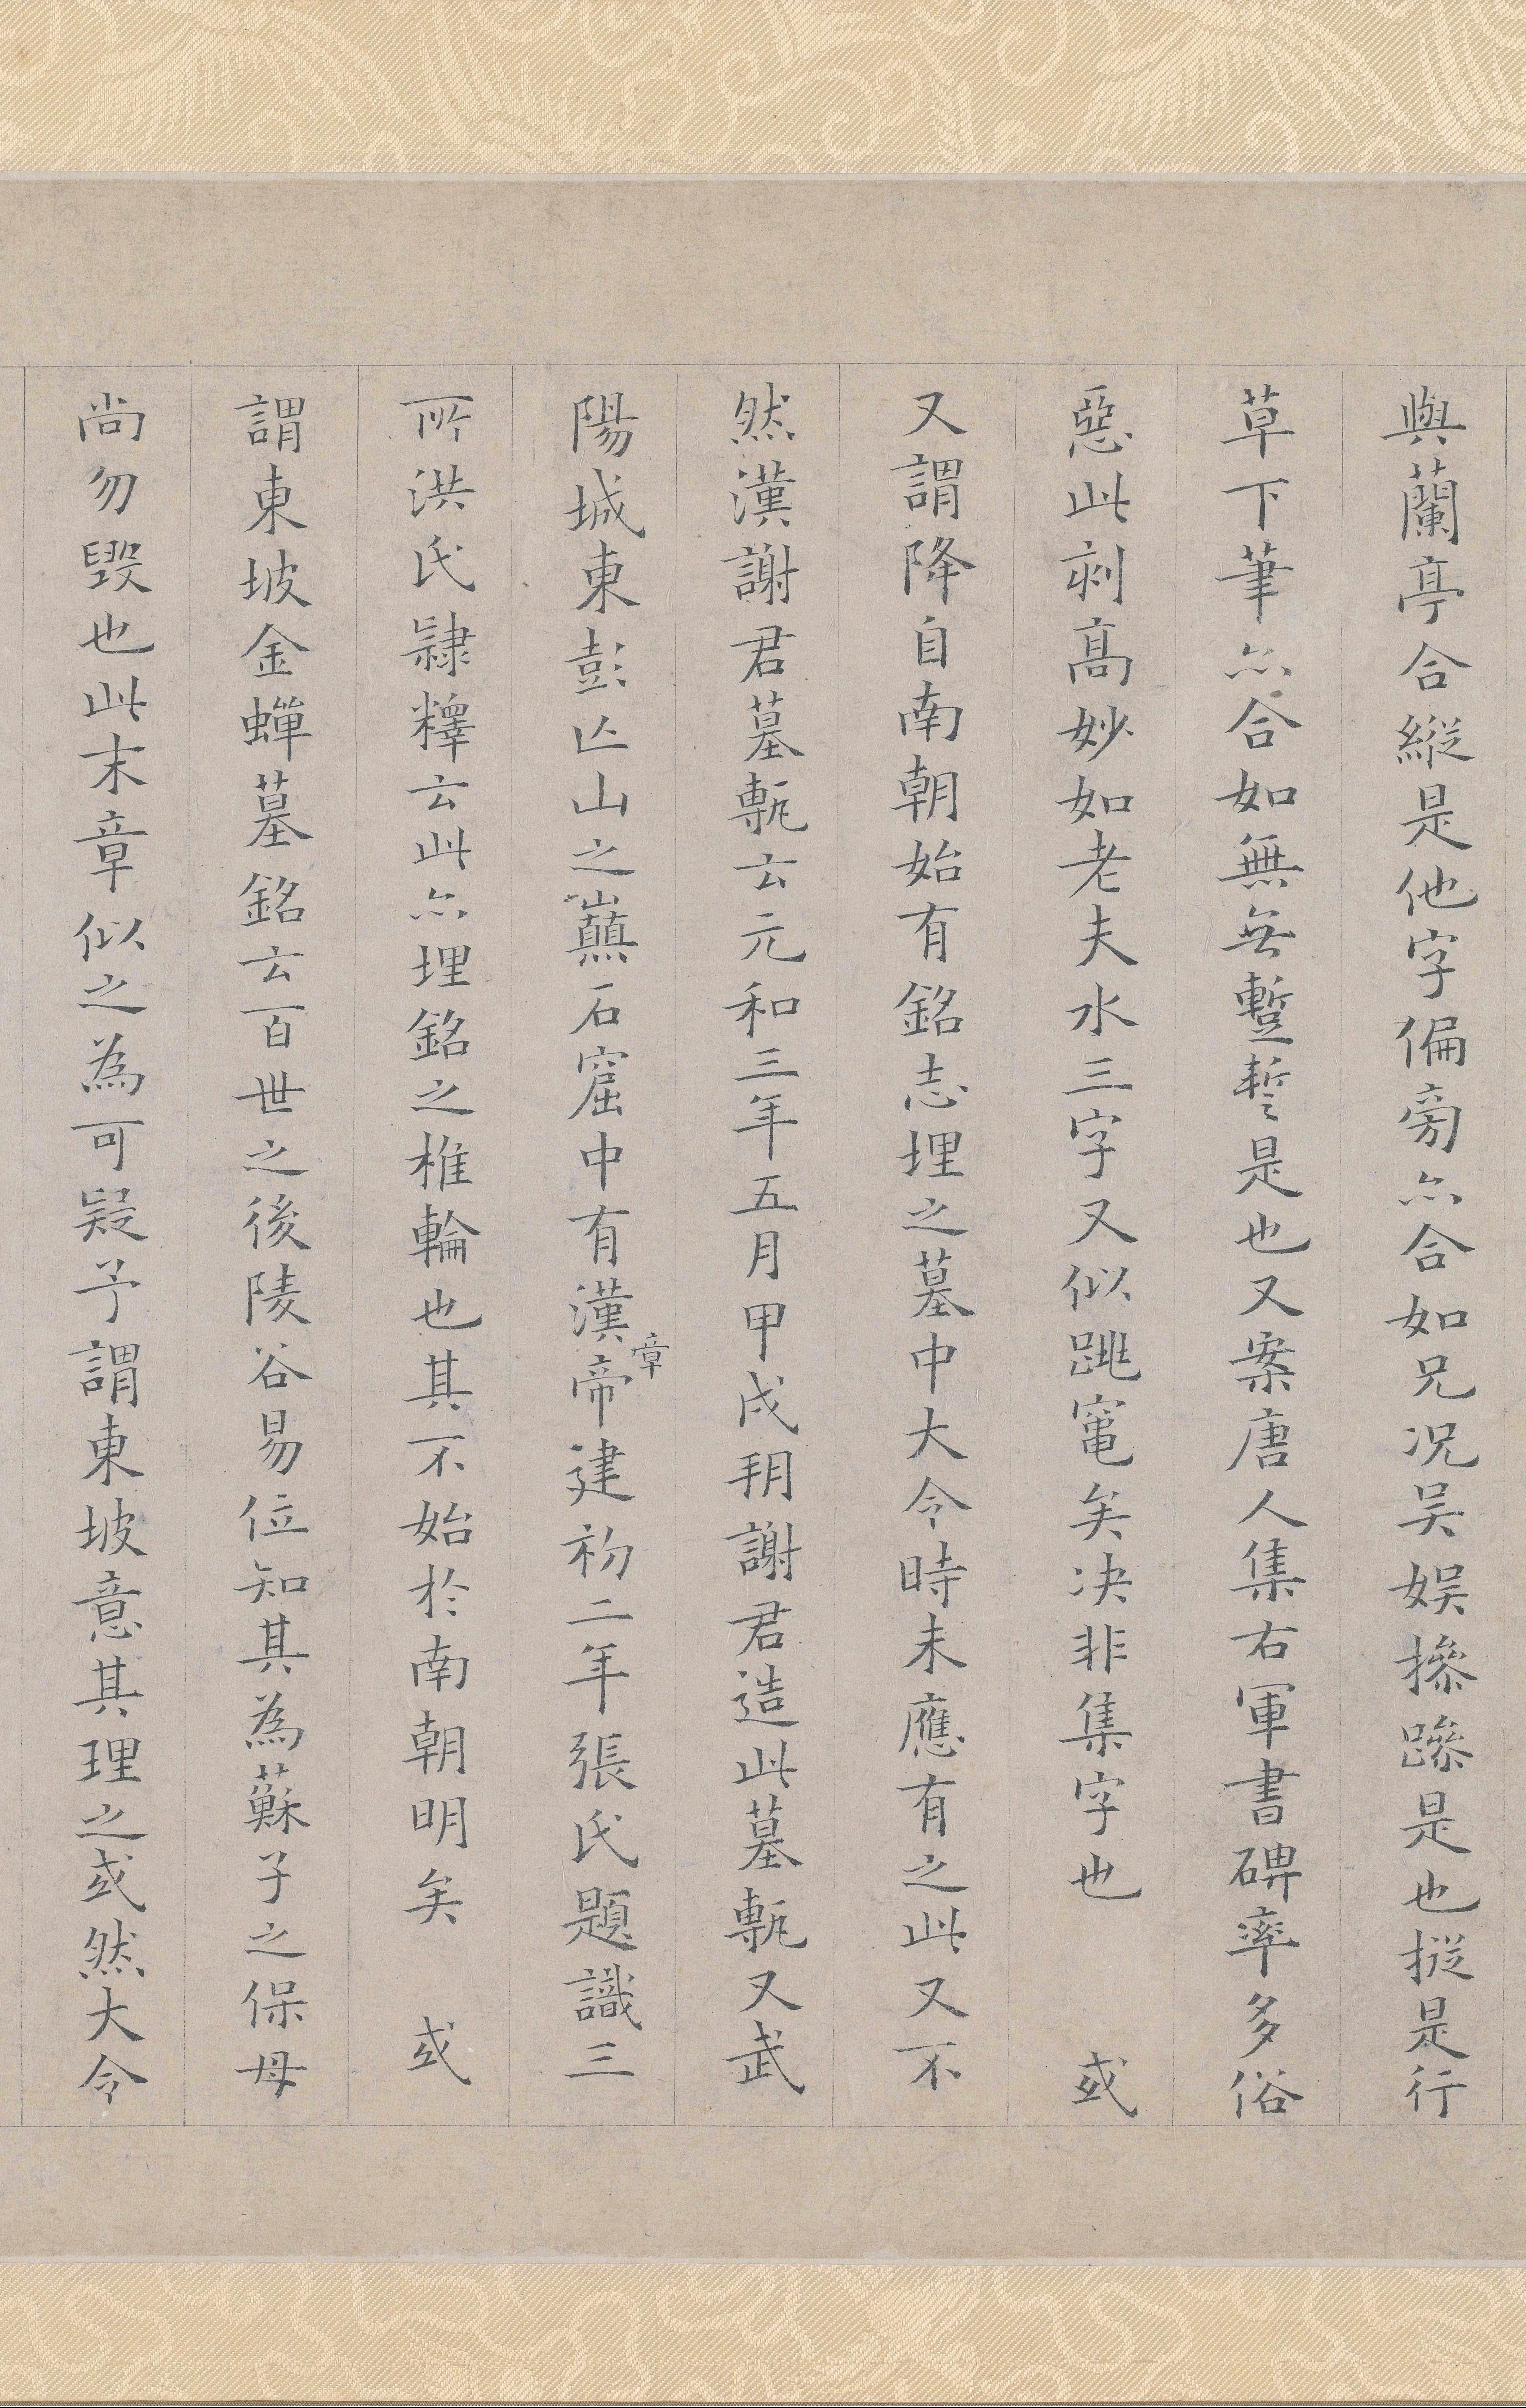 與蘭亭合縱是他字偏旁亦合如兄况吴娱摻蹤是也摐是行
草下筆亦合如無𠅤蹔誓是也又案唐人集右軍書碑率多俗
惡此刻高妙如老夫水三字又似跳竃矣决非集字也　或
又謂降自南朝始有銘志埋之墓中大令時未應有之此又不
然漢謝君墓甎云元和三年五月甲戌朔謝君造此墓甎又武
陽城東彭亾山之巔石窟中有漢章帝建初二年張氏題識三
所洪氏隸釋云此亦埋銘之椎輪也其不始於南朝明矣　或
謂東坡金蟬墓銘云百世之後陵谷易位知其為蘇子之保母
尚勿毀也此末章似之為可疑予謂東坡意其理之或然大令